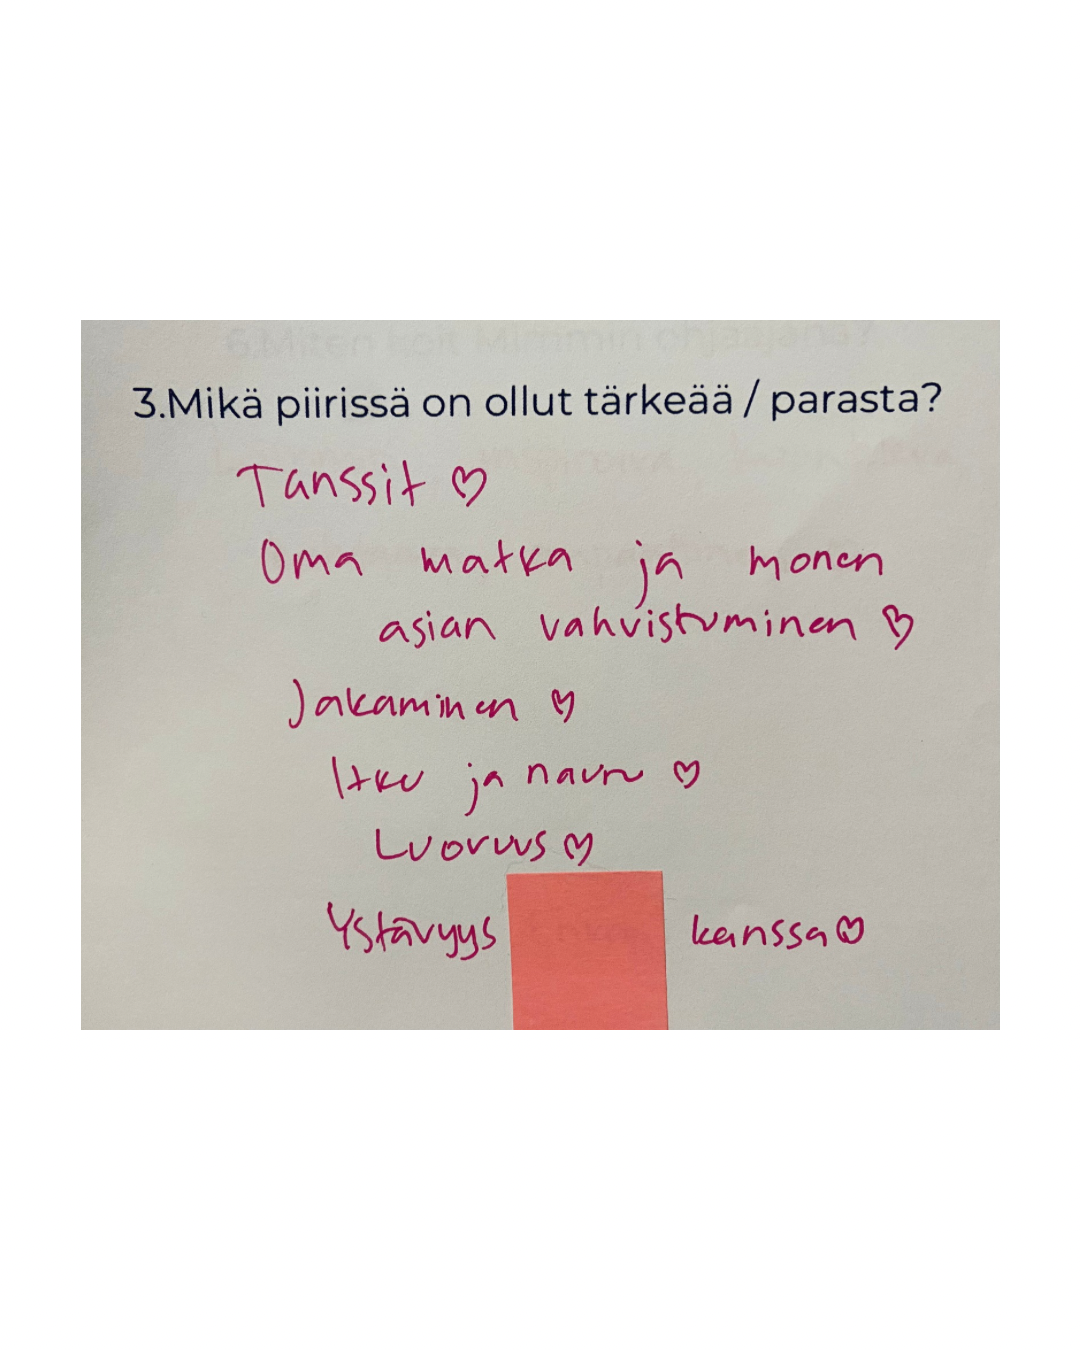 3.Mikä piirissä on ollut tärkeää / parasta?
Tanssit ♡
Oma matka ja monen
asian vahvistuminen ♡
Jakaminen ♡
Itku ja nauru ♡
Luovuus ♡
Ystävyys kanssa ♡